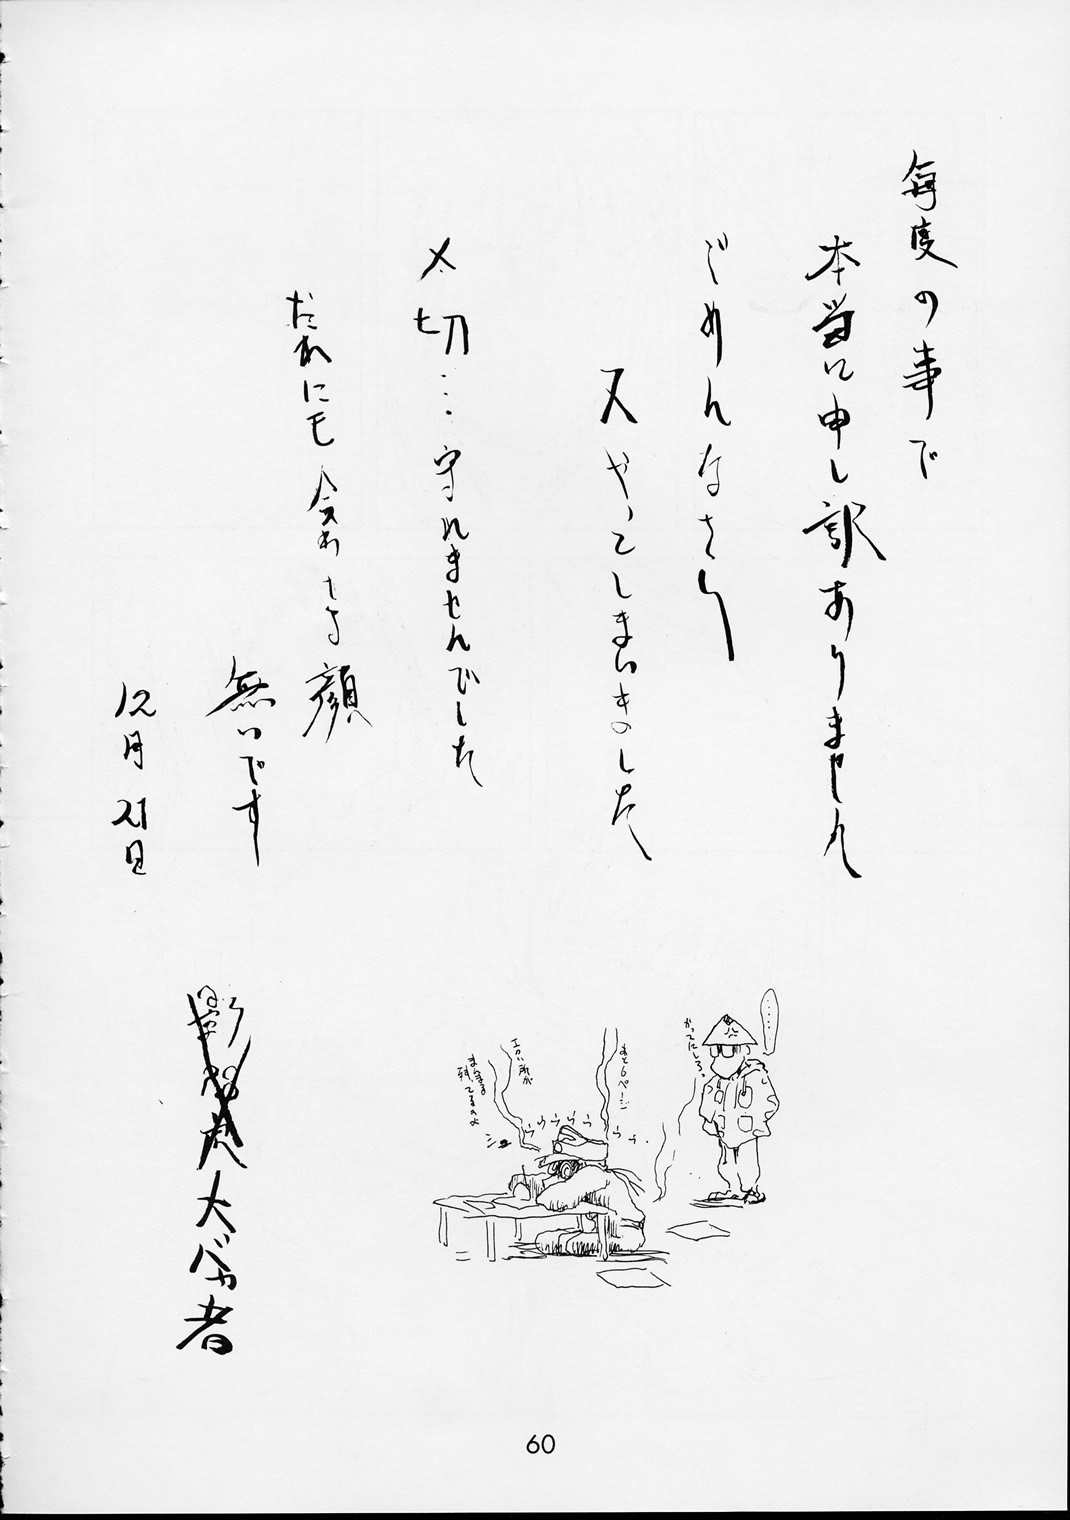 毎度の事で
本当に申し訳ありません
ごめんなさい
又やってしまいました
〆切…守れませんでした
だれにも会わせる顔
無いです
12月21日
大バカ者
……
かってにしろ。
あと6ページ
ウウウウウウゥ
エロい所が
まだまる
残ってるのよ
60